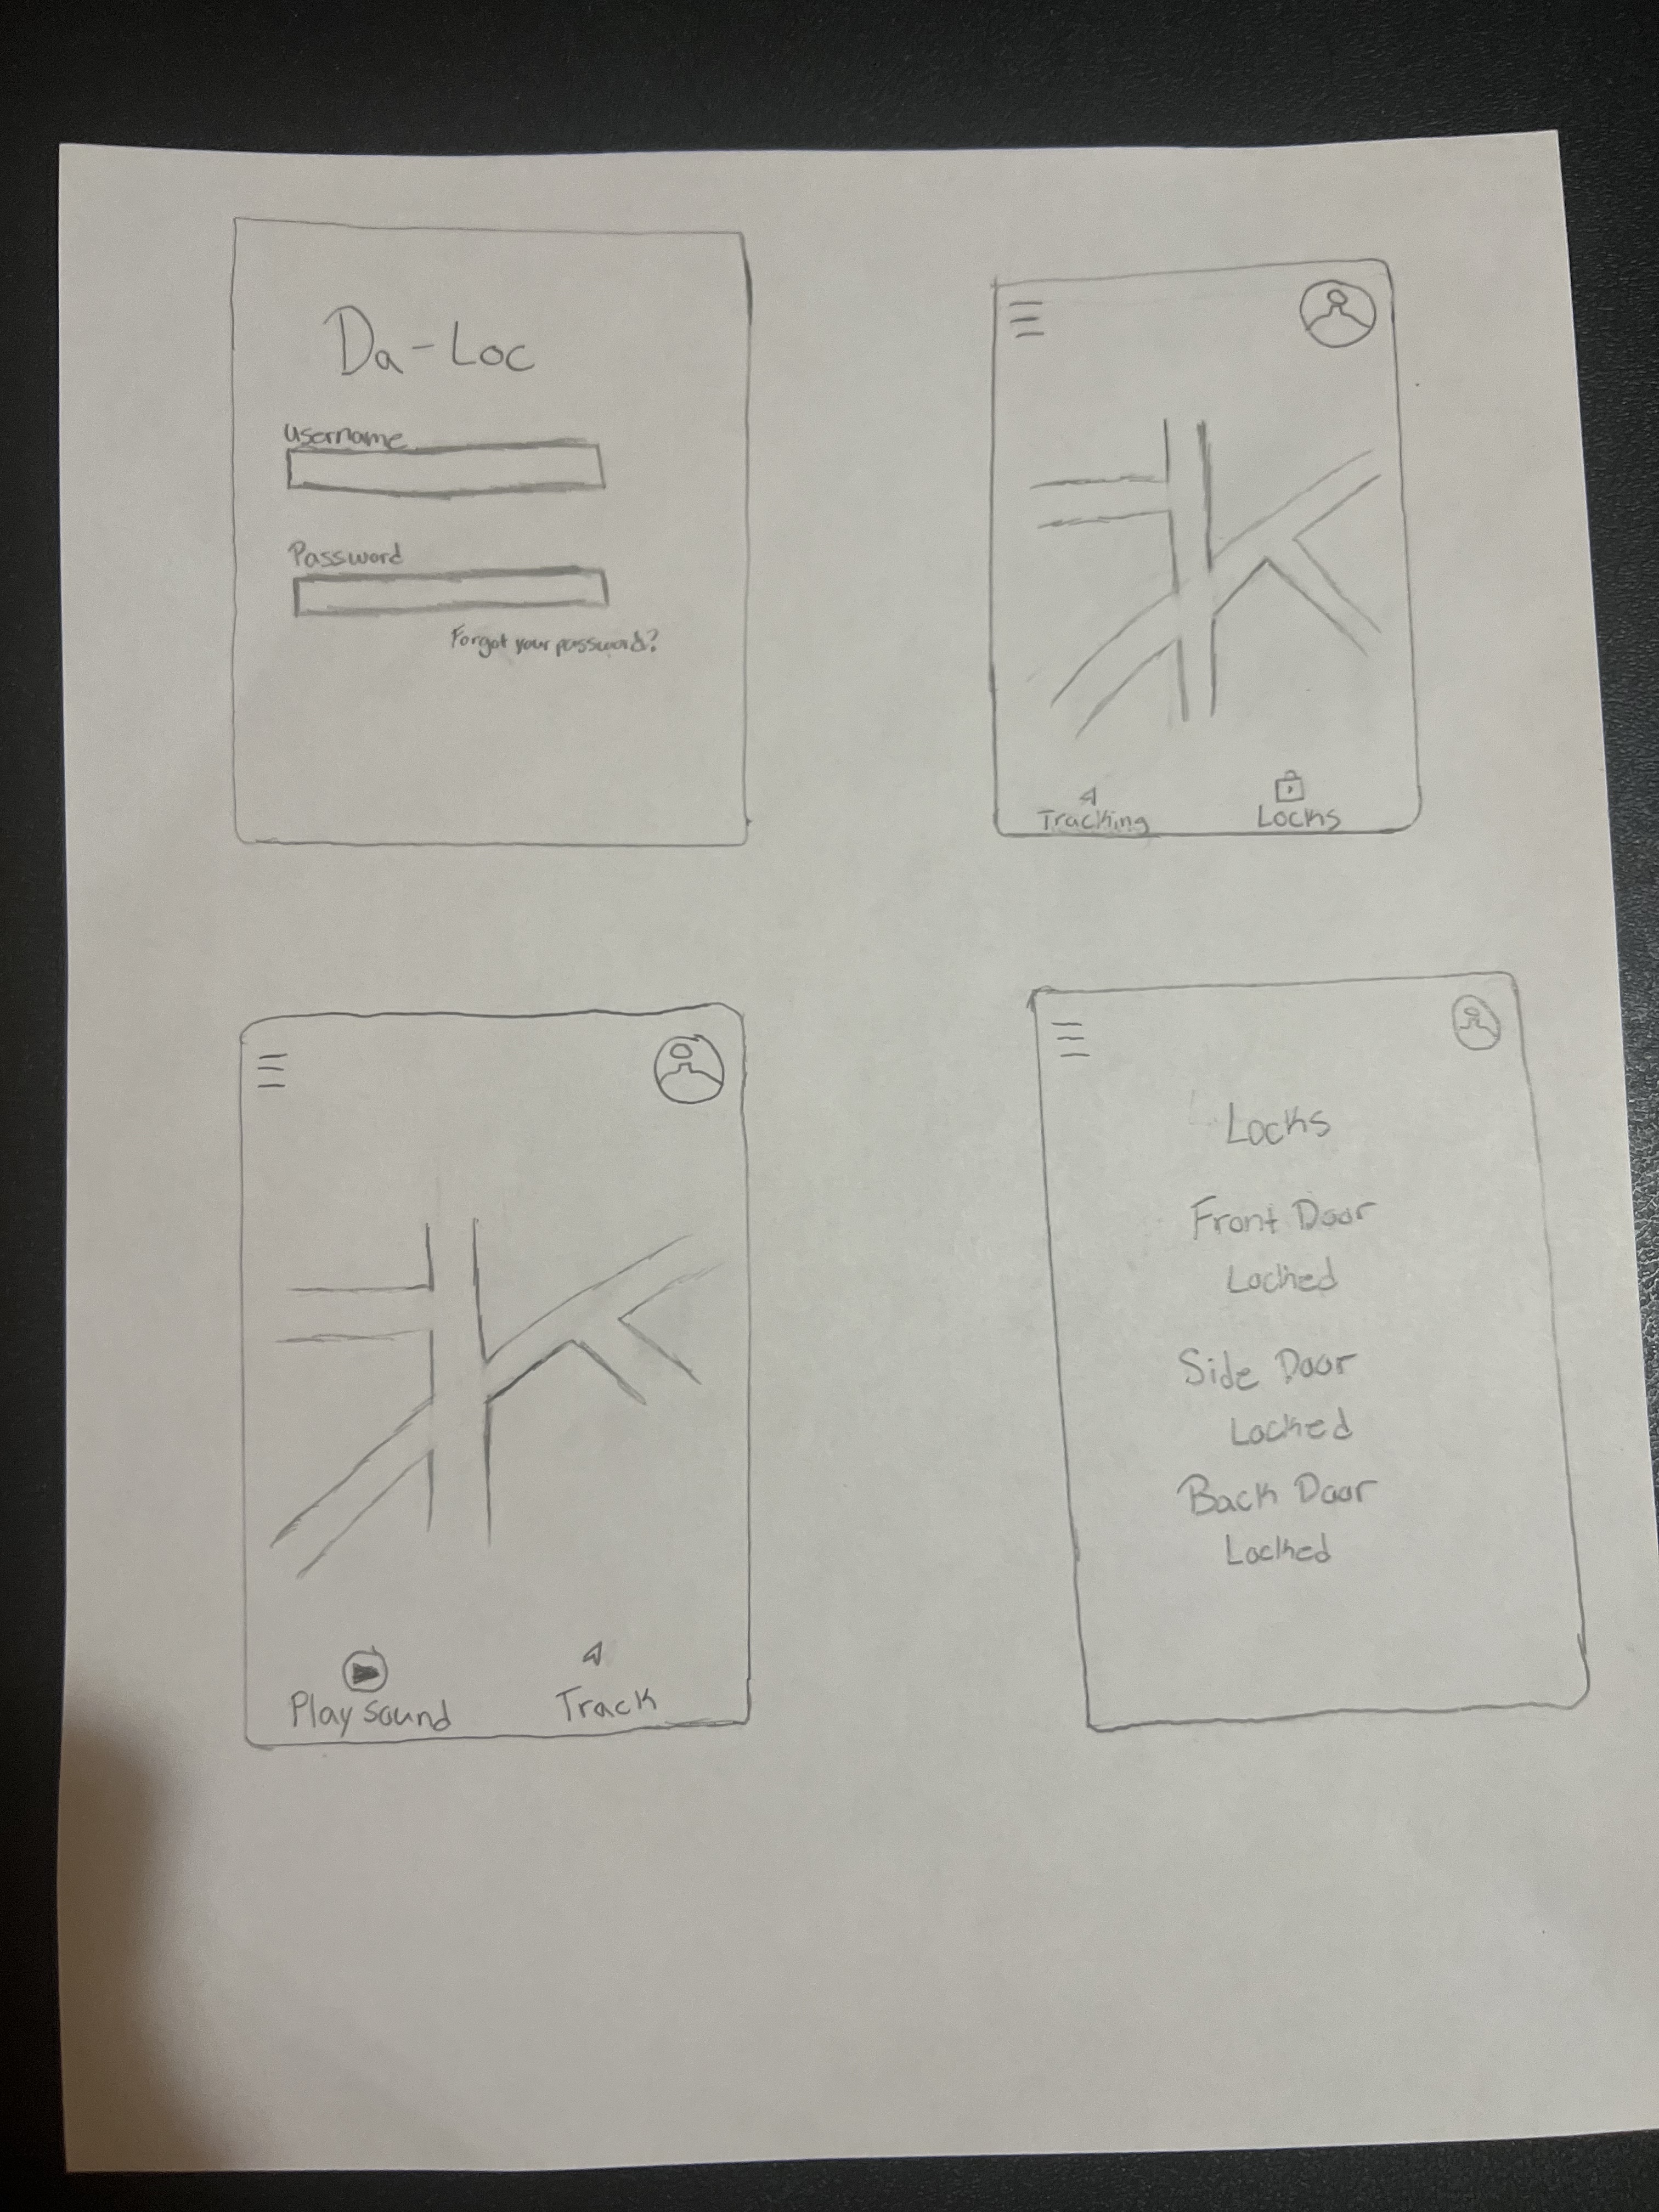 Da-Loc
Username
Password
Forgot your password?
Tracking
Locks
Play sound
Track
Locks
Front Door
Locked
Side Door
Locked
Back Door
Locked